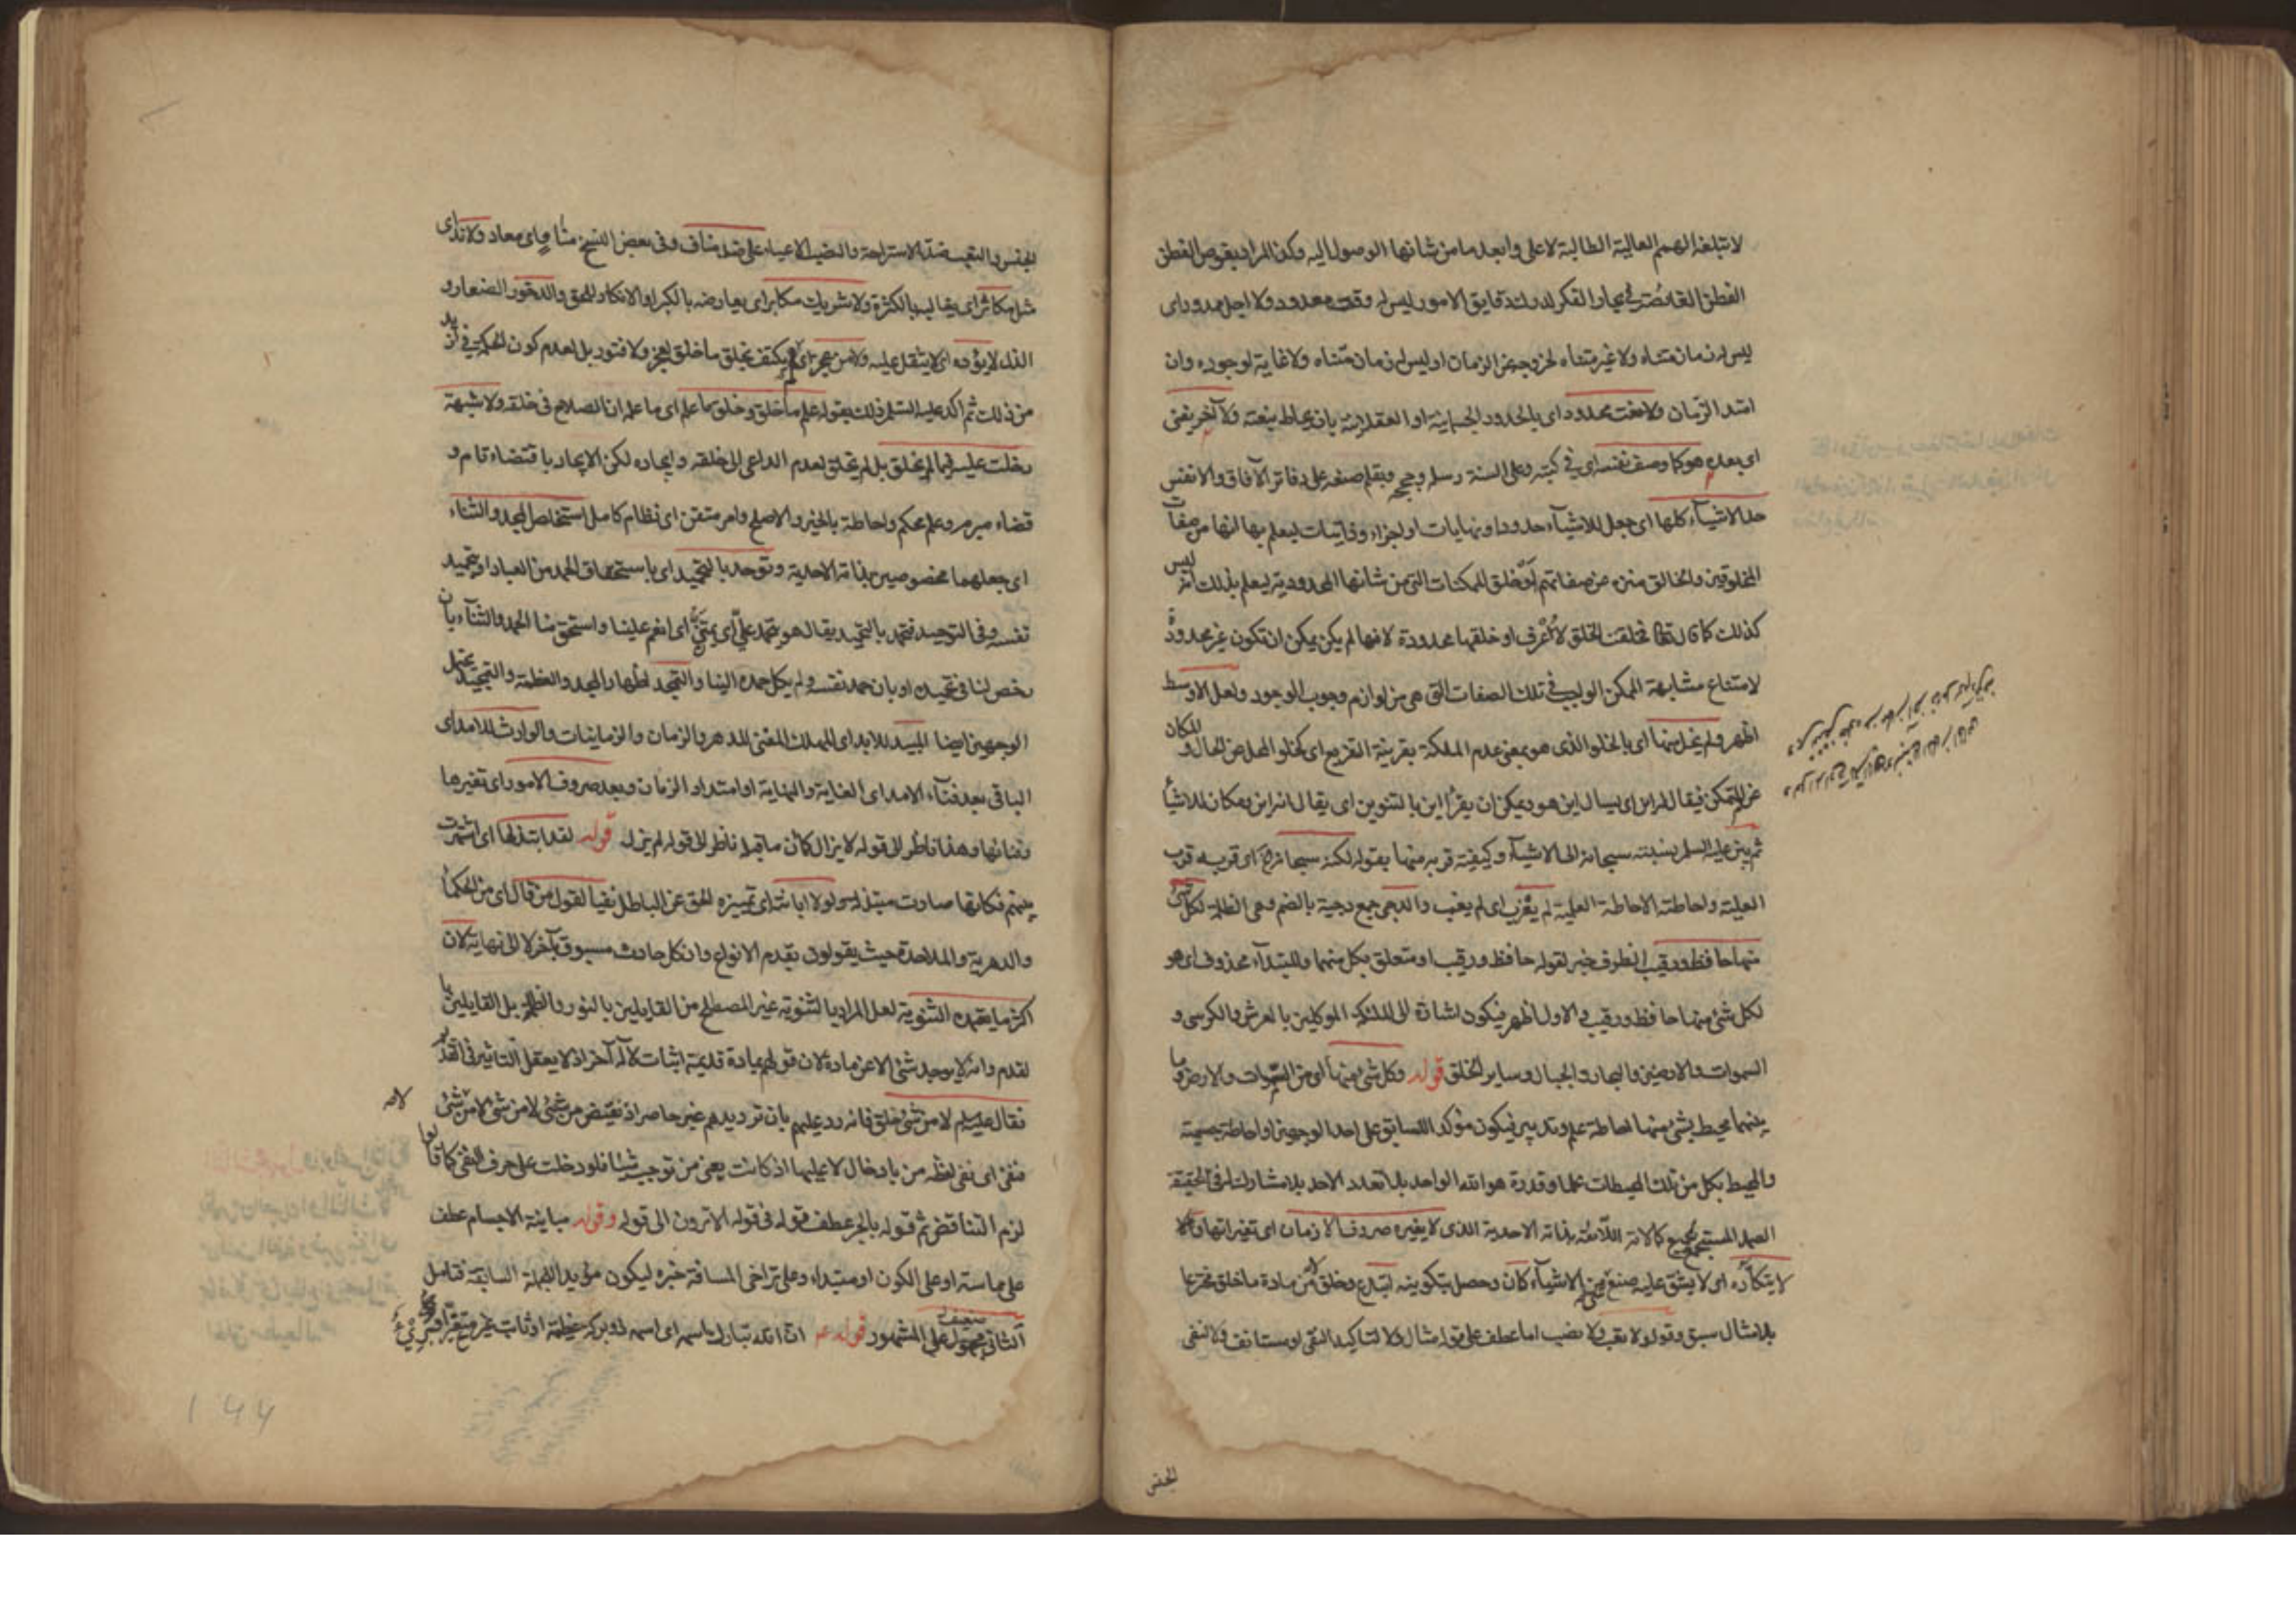 لا تبلغه الهمم العالية الطالبة لاعلى وابعد ما من شانها الوصول اليه وكذا المراد بغوص الفطن
الفطن الغائصة في بحار الفكر لدرك دقايق الامور ليس له وقت معدود ولا اجل ممدود اى
ليس له زمان متناه ولا غير متناه لخروجه عن الزمان او ليس له زمان متناه ولا غاية لوجوده وان
امتد الزمان ولا نعت محدود اى بالحدود الجسمانية او العقلانية بان يحاط بنعته ولا آخر يفنى
اى بعده هو كما وصف نفسه اى في كتبه وعلى السنة رسله وحججه وبقلم صنعه على دفاتر الآفاق والانفس
حد الاشياء كلها اى جعل للاشياء حدودا ونهايات او اجزاء وذاتيات ليعلم بها انها من صفات
المخلوقين والخالق منزه عن صفاتهم او خلق الممكنات التى من شانها المحدودية ليعلم بذلك انه ليس
كذلك كما قال تعالى فخلقت الخلق لأُعْرف او خلقها محدودة لانها لم يكن يمكن ان تكون غير محدودة
لامتناع مشابهة الممكن الواجب في تلك الصفات التى هى من لوازم وجوب الوجود ولعل الاوسط
اظهر ولم يخل منها اى بالخلو الذى هو بمعنى عدم الملكة بقرينة التفريع اى كخلو المحل عن الحال والمكان
عن المتمكن فيقال له اين اى يسال اين هو ويمكن ان يقرأ اين بالتنوين اى يقال انه اين ومكان للاشياء
ثم بين عليه السلم نسبته سبحانه الى الاشياء وكيفية قربه منها بقوله لكنه سبحانه اى قربه قرب
العلية واحاطته الاحاطة العلمية لم يعْزُب اى لم يغب والدجى جمع دجية بالضم وهى الظلمة لكل شئ
منها حافظ ورقيب الظرف خبر لقوله حافظ ورقيب او متعلق بكل منهما والمبتداء محذوف اى هو
لكل شئ منها حافظ ورقيب والاول اظهر فيكون اشارة الى الملائكة الموكلين بالعرش والكرسى و
السموات والارضين والبحار والجبال وساير الخلق قوله وكل شئ منها اى من السموات والارض وما
بينهما محيط بشئ منها احاطة علم وتدبير فيكون مؤكدا للسابق على احد الوجهين او احاطة جسمية
والمحيط بكل من تلك المحيطات علما وقدرة هو الله الواحد بلا تعدد الاحد بلا مشارك له في الحقيقة
الصمد المستجمع لجميع كمالاته اللائقة بذاته الاحدية الذى لا يغيره صروف الازمان اى تغيراتها ولا
لا يتكأّده اى لا يشق عليه صنع شئ من الاشياء كان وحصل بتكوينه ابتدع وخلق لا من مادة ما خلق مخترعا
بلا مثال سبق وقوله ولا تعب ولا نصب اما عطف على قوله مثال ولا لتاكيد النفى او مستانف ولا لنفى
الجنس
الجنس والتعب ضد الاستراحة والنصب الاعياء على ضد مناف وفى بعض النسخ مناوٍ اى معاد ولا ند اى
مثل مكاثر اى يغالبه بالكثرة ولا شريك مكابر اى يعارضه بالكبر او الانكار للحق والدخور الصغار و
الذل لا يؤده اى لا يثقل عليه ولا من عجز اى لم يكتف بخلق ما خلق لعجز ولا فتور بل لعدم كون الحكمة في ازيد
من ذلك ثم اكد عليه السلم ذلك بقوله علم ما خلق وخلق ما علم اى ما علم ان الصلاح فى خلقه ولا شبهة
دخلت عليه فيما لم يخلق بل لم يخلق لعدم الداعى الى خلقه وايجاده لكن الايجاد باقتضاء تام و
قضاء مبرم وعلم محكم واحاطة بالخير والاصلح وامر متقن اى نظام كامل استخلص المجد والثناء
اى جعلهما مخصوصين بذاته الاحدية وتوحد بالتحميد اى باستحقاق الحمد من العباد او بتحميد
نفسه وفى التوحيد فتحمد بالتحميد يقال هو يتحمد علىّ اى يمتنّ اى انعم علينا واستحق منا الحمد والثناء بان
رخص لنا فى تحميده او بان حمد نفسه ولم يكل حمده الينا والتمجد اظهار المجد والعظمة والتمجيد يحتمل
الوجهين ايضا المبيد للابد اى المهلك المفنى للدهر والزمان والزمانيات والوارث للامد اى
الباقى بعد فناء الامد اى الغاية والنهاية او امتداد الزمان وبعد صروف الامور اى تغيرها
وفنائها وهذا ناظر الى قوله لا يزال كما ان ما قبله ناظر الى قوله لم يزل قوله لقد ابتذلها اى اشتهرت
بينهم فكانها صارت مبتذلة ولولا ابانته اى تمييزه الحق عن الباطل نفيا لقول من قال اى من الحكماء
والدهرية والملاحدة حيث يقولون بقدم الانواع وان كل حادث مسبوق بآخر لا الى نهاية لان
اكثر ما يعتمده الثنوية لعل المراد بالثنوية غير المصطلح من القايلين بالنور والظلمة بل القايلين با
لقدم وانه لا يوجد شئ الا عن مادة لان قولهم بمادة قديمة اثبات لاله آخر اذ لا يعقل التاثير فى القديم
فقال عليه السلم لا من شئ خلق فانه رد عليهم بان ترديدهم غير حاصر اذ نقيض من شئ لا من شئ لا من لا شئ
فنفى اى نفى لفظه من بادخال لا عليها اذ كانت يعنى من توجب شيئا فلو دخلت على حرف النفى كما قالوا
لزم التناقض ثم قوله بالجر عطف قوله فى قوله الا ترون الى قوله وقوله مباينة الاجسام عطف
على مماسته او على الكون او مبتداء وعلى تراخى المسافة خبره ليكون مؤيدا للجملة السابقة فتامل
الثانى مجهول على المشهور قوله ان الله تبارك اسمه اى اسمه ذو بركة عظيمة او ثابت غير متغير او برئ